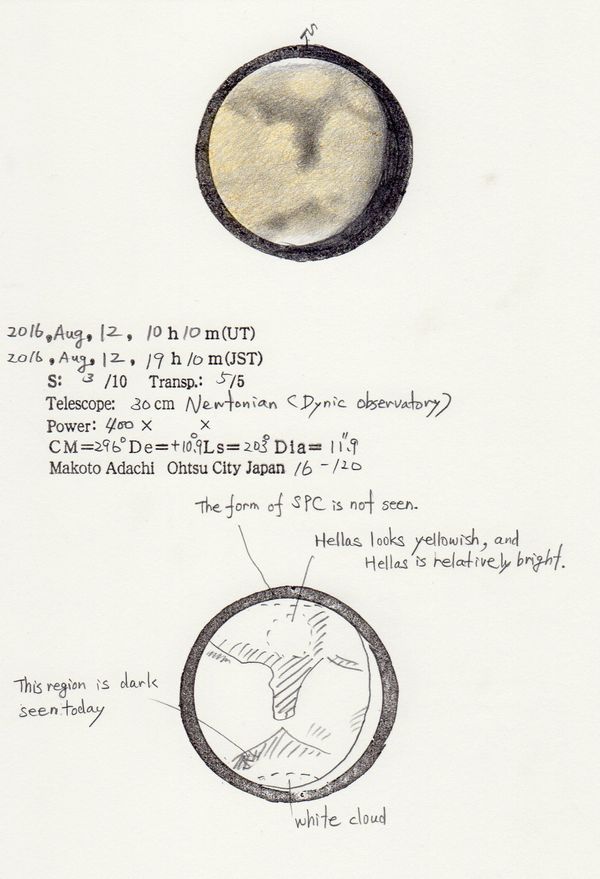 S
2016, Aug, 12, 10 h 10 m (UT)
2016, Aug, 12, 19 h 10 m (JST)
S: 3 /10 Transp.: 5/5
Telescope: 30 cm Newtonian (Dynic Observatory)
Power: 400 × ×
CM=296° De=+10.°9 Ls=203° Dia= 11."9
Makoto Adachi Ohtsu City Japan 16-120
The form of SPC is not seen.
Hellas looks yellowish, and
Hellas is relatively bright.
This region is dark
seen today
white cloud